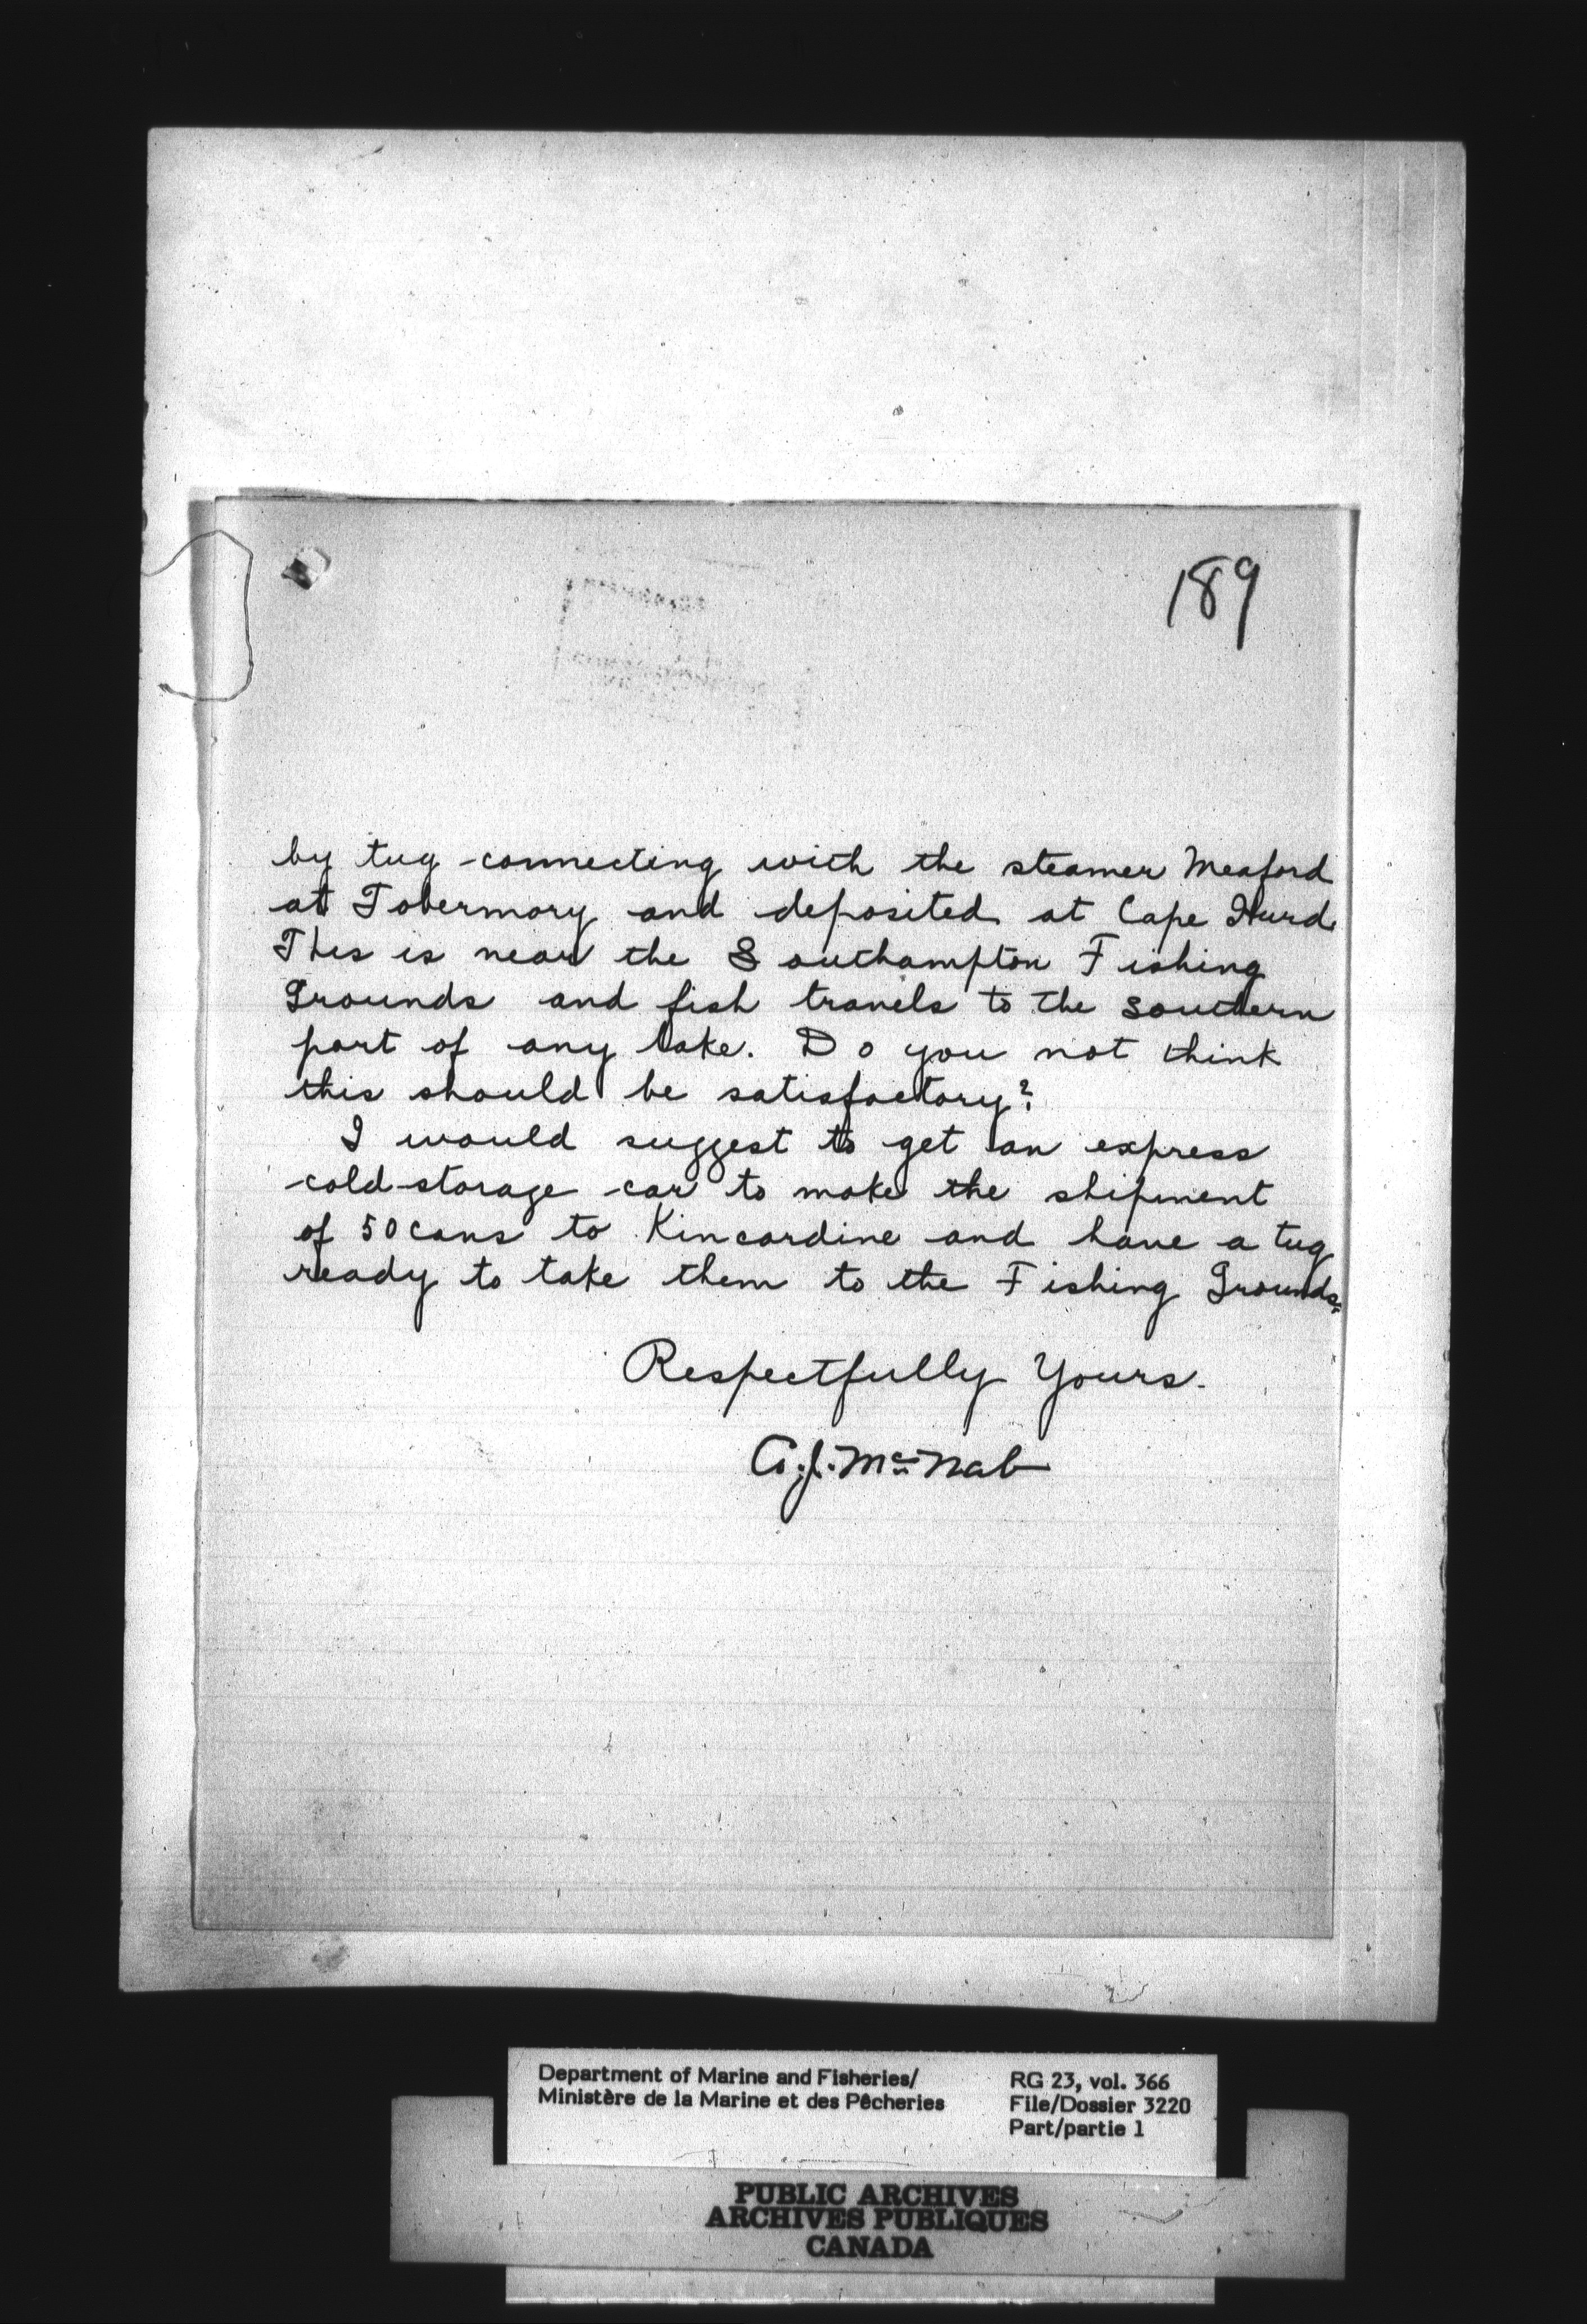 189
by tug connecting with the steamer Meaford
at Tobermory and deposited at Cape Hurd
This is near the Southampton Fishing
Grounds and fish travels to the southern
part of any lake. Do you not think
this should be satisfactory?
I would suggest to get an express
cold-storage car to make the shipment
of 50 cans to Kincardine and have a tug
ready to take them to the Fishing Grounds.
Respectfully Yours.
A.J. McNab
Department of Marine and Fisheries/
Ministère de la Marine et des Pêcheries
RG 23, vol. 366
File/Dossier 3220
Part/partie 1
PUBLIC ARCHIVES
ARCHIVES PUBLIQUES
CANADA